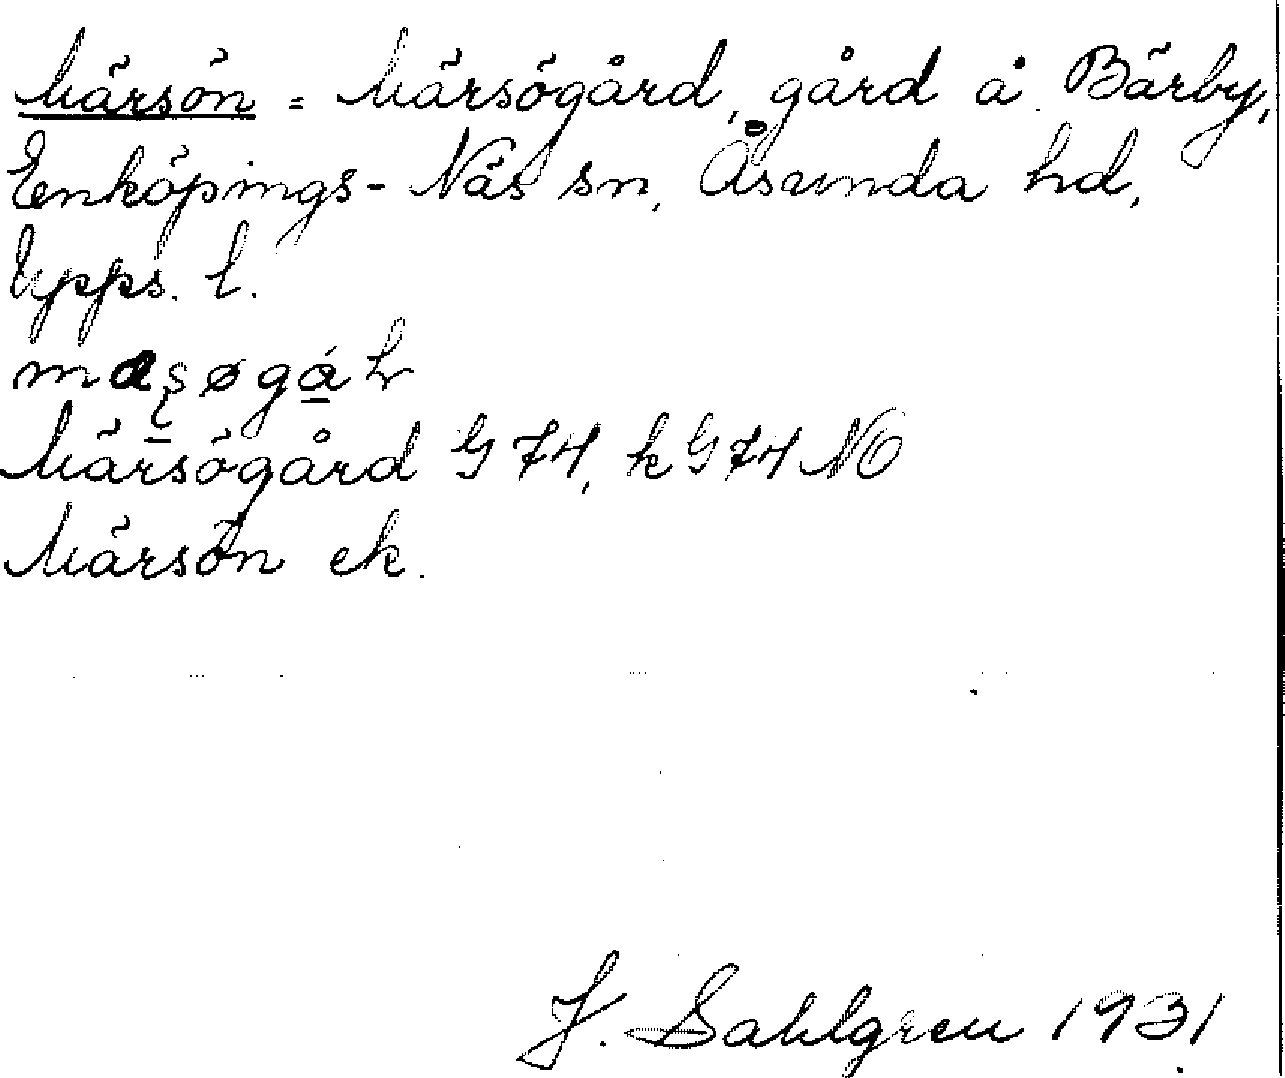 Märsön = Märsögård, gård å Bärby,
Enköpings-Näs sn, Åsunda hd,
Upps. l.
Märsögård G 74, k G 74 NO
Märsön ek.
J. Sahlgren 1931